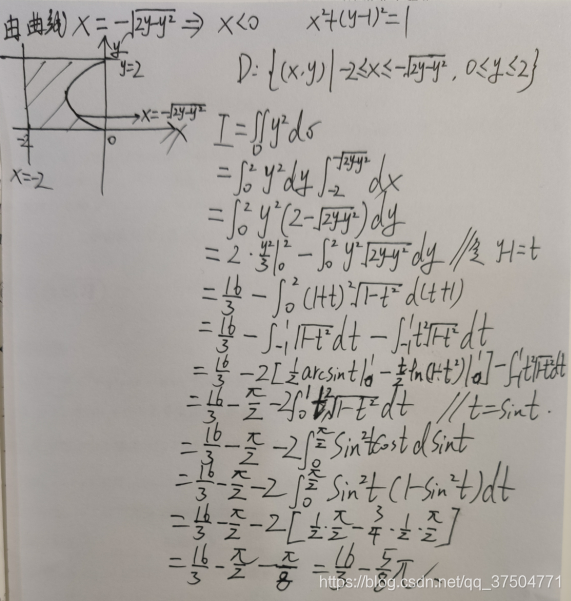 由曲线 x = -√(2y-y²) ⇒ x<0 x²+(y-1)²=1
y
y=2
D: {(x,y) | -2≤x≤-√(2y-y²), 0≤y≤2}
x=-√(2y-y²)
-2
0
x
x=-2
I = ∬_D y²dσ
= ∫₀² y²dy ∫₋₂^(-√(2y-y²)) dx
= ∫₀² y²(2-√(2y-y²))dy
= 2·y²/3|₀² - ∫₀² y²√(2y-y²)dy //令 y-1=t
= 16/3 - ∫₀² (1+t)²√(1-t²) d(t+1)
= 16/3 - ∫₋₁¹ √(1-t²)dt - ∫₋₁¹ t²√(1-t²)dt
= 16/3 - 2[½arcsint|₀¹ - ½ln(1+t²)|₀¹] - ∫₋₁¹ t²√(1-t²)dt
= 16/3 - π/2 - 2∫₀¹ t²√(1-t²)dt //t=sint.
= 16/3 - π/2 - 2∫₀^(π/2) sin²tcost dsint
= 16/3 - π/2 - 2∫₀^(π/2) sin²t(1-sin²t)dt
= 16/3 - π/2 - 2[½·π/2 - ¾·½·π/2]
= 16/3 - π/2 - π/8 = 16/3 - 5/8π
https://blog.csdn.net/qq_37504771